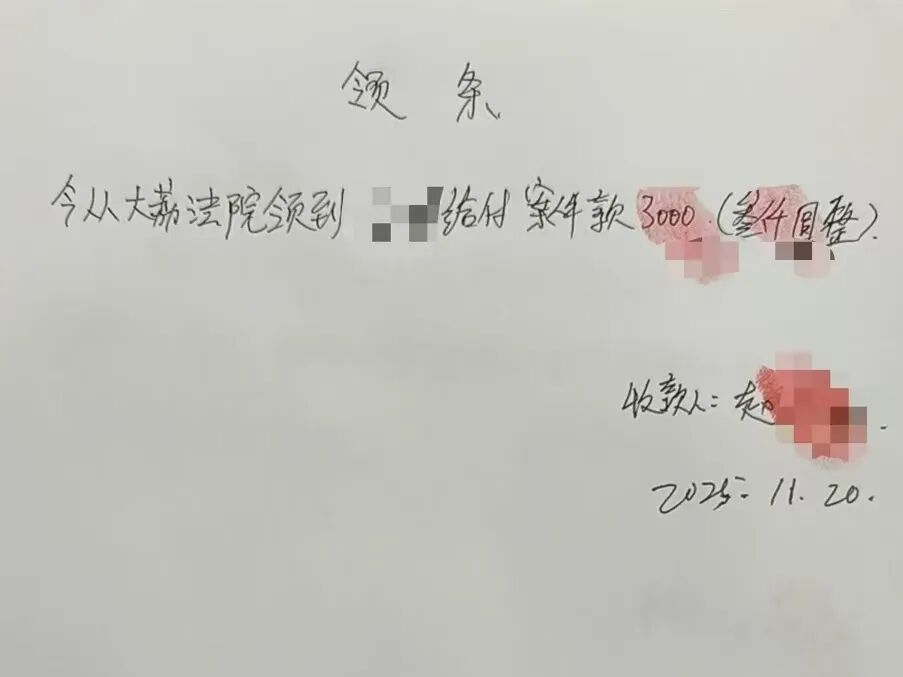 领 条
今从大荔法院领到 给付案件款3000.(叁仟圆整).
收款人: 赵
2025. 11. 20.